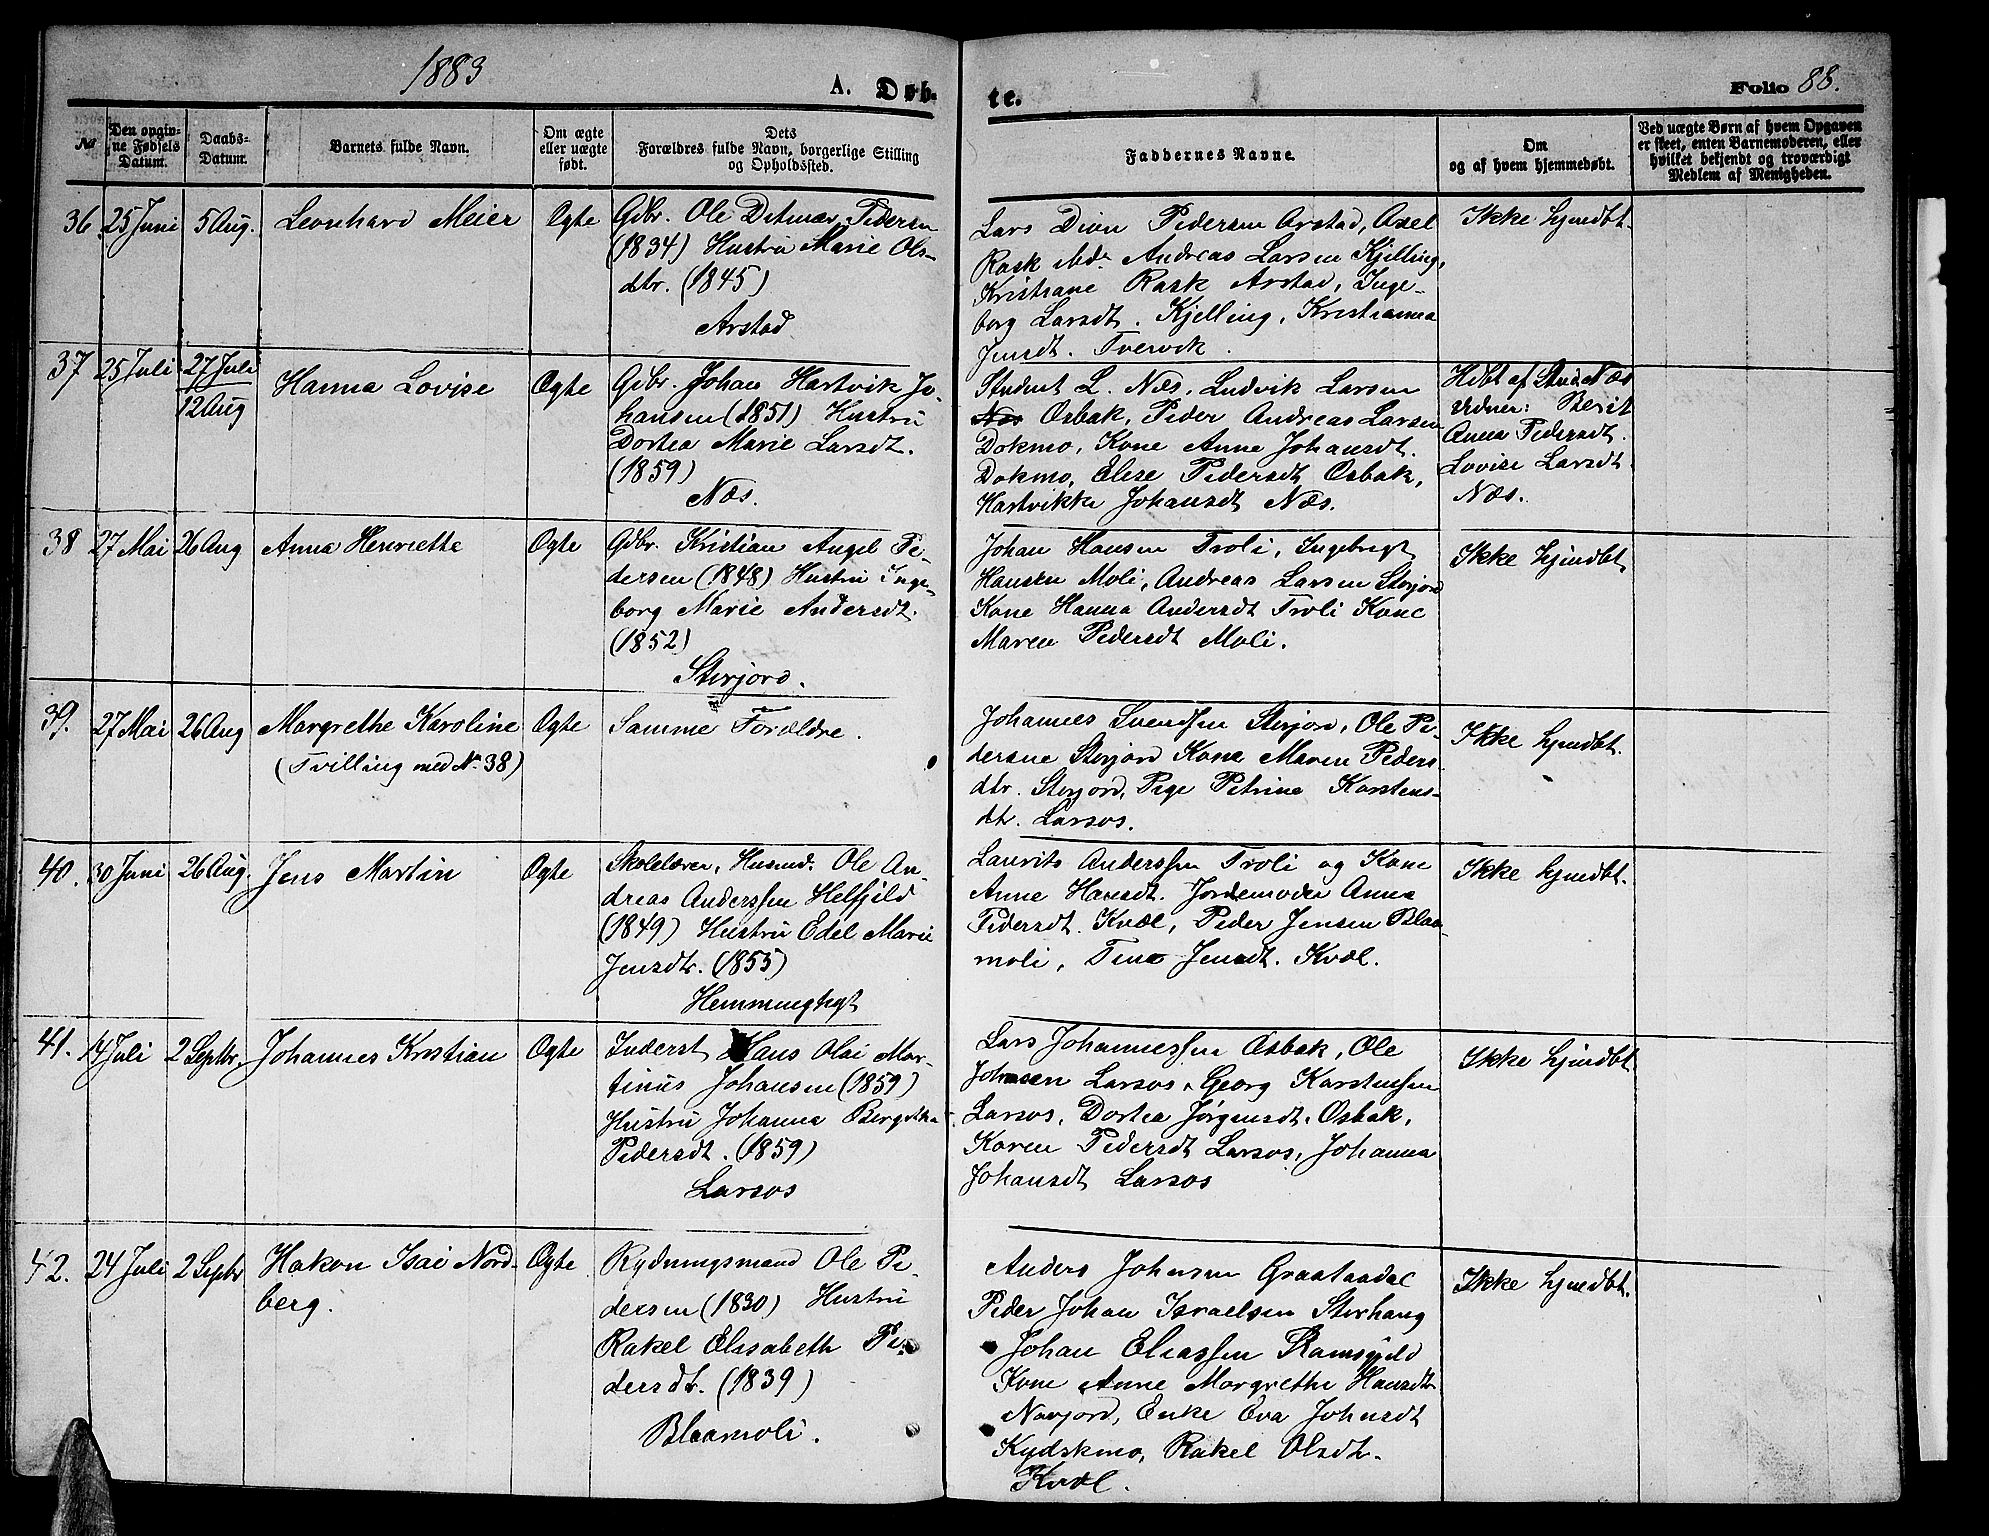 1883
A. Døb-
te.
Folio 88.
No
Den opgiv-
ne Fødsels
Datum.
Daabs-
Datum.
Barnets fulde Navn.
Om ægte
eller uægte
født.
Dets
Forældres fulde Navn, borgerlige Stilling
og Opholdssted.
Faddernes Navne.
Om
og af hvem hjemmedøbt.
Ved uægte Børn af hvem Opgaven
er skeet, enten Barnemoderen, eller
hvilket bekjendt og troværdigt
Medlem af Menigheden.
36. 25 Juni 5 Aug. Leonhard Meier Ægte
Gdbr. Ole Ditmar Pedersen
(1834) Hustru Marie Ols-
dtr. (1845)
Arstad
Lars Dion Pedersen Arstad, Axel
Rask ibd. Andreas Larsen Kjelling,
Kristiane Rask Arstad, Inge-
borg Larsdt. Kjelling, Kristianna
Jensdt. Tvervik.
Ikke hjmdbt.
37 25 Juli 27 Juli
12 Aug
Hanna Lovise Ægte
Gdbr. Johan Hartvik Jo-
hansen (1851) Hustru
Dortea Marie Larsdt.
(1859)
Næs.
Student L. Næs, Ludvik Larsen
Næs Osbak, Peder Andreas Larsen
Dokmo, Kone Anne Johansdt.
Dokmo, Elise Pedersdt Osbak,
Hartvikke Johansdt Næs.
Hdbt af Stud. Næs
Vidner: Berit
Anna Pedersdt.
Lovise Larsdt
Næs.
38 27 Mai 26 Aug Anna Henriette Ægte
Gdbr. Kristian Angel Pe-
dersen (1848) Hustru Inge-
borg Marie Andersdt.
(1852)
Storjord.
Johan Hansen Troli, Ingebrigt
Hansen Moli, Andreas Larsen Storjord
Kone Hanna Andersdt Troli Kone
Maren Pedersdt Moli.
Ikke hjmdbt.
39. 27 Mai 26 Aug Margrethe Karoline Ægte
(Tvilling med No 38)
Samme Forældre.
Johannes Svendsen Storjord, Ole Pe-
dersen Storjord Kone Maren Peders
dtr. Storjord, Pige Petrine Karstens-
dtr. Larsos.
Ikke hjmdbt.
40. 30 Juni 26 Aug. Jens Martin Ægte
Skolelærer, Husmd. Ole An-
dreas Anderssen Helfjeld
(1849) Hustru Edel Marie
Jensdtr. (1855)
Hemminghyt
Laurits Anderssen Troli og Kone
Anne Hansdt. Jordemoder Anna
Pedersdt. Kvæl, Peder Jensen Blaa-
moli, Tina Jensdt. Kvæl.
Ikke hjmdbt.
41. 14 Juli 2 Septbr. Johannes Kristian Ægte
Inderst Hans Olai Mar-
tinus Johansen (1859)
Hustru Johanna Bergitha
Pedersdt. (1859)
Larsos
Lars Johannessen Osbak, Ole
Johnsen Larsos, Georg Karstensen
Larsos, Dortea Jørgensdt. Osbak,
Karen Pedersdt Larsos, Johanna
Johansdt Larsos
Ikke hjmdbt
42. 24 Juli 2 Septbr Hakon Isai Nord-
berg.
Ægte
Rydningsmand Ole Pe-
dersen (1830) Hustru
Rakel Elisabeth Pe-
dersdt. (1839)
Blaamoli.
Anders Johnsen Graataadal
Peder Johan Israelsen Storhaug
Johan Eliassen Ramsgjeld
Kone Anne Margrethe Hansdt.
Navjord, Enke Eva Johnsdt
Kydskmo, Rakel Olsdt.
Kvæl.
Ikke hjmdbt.